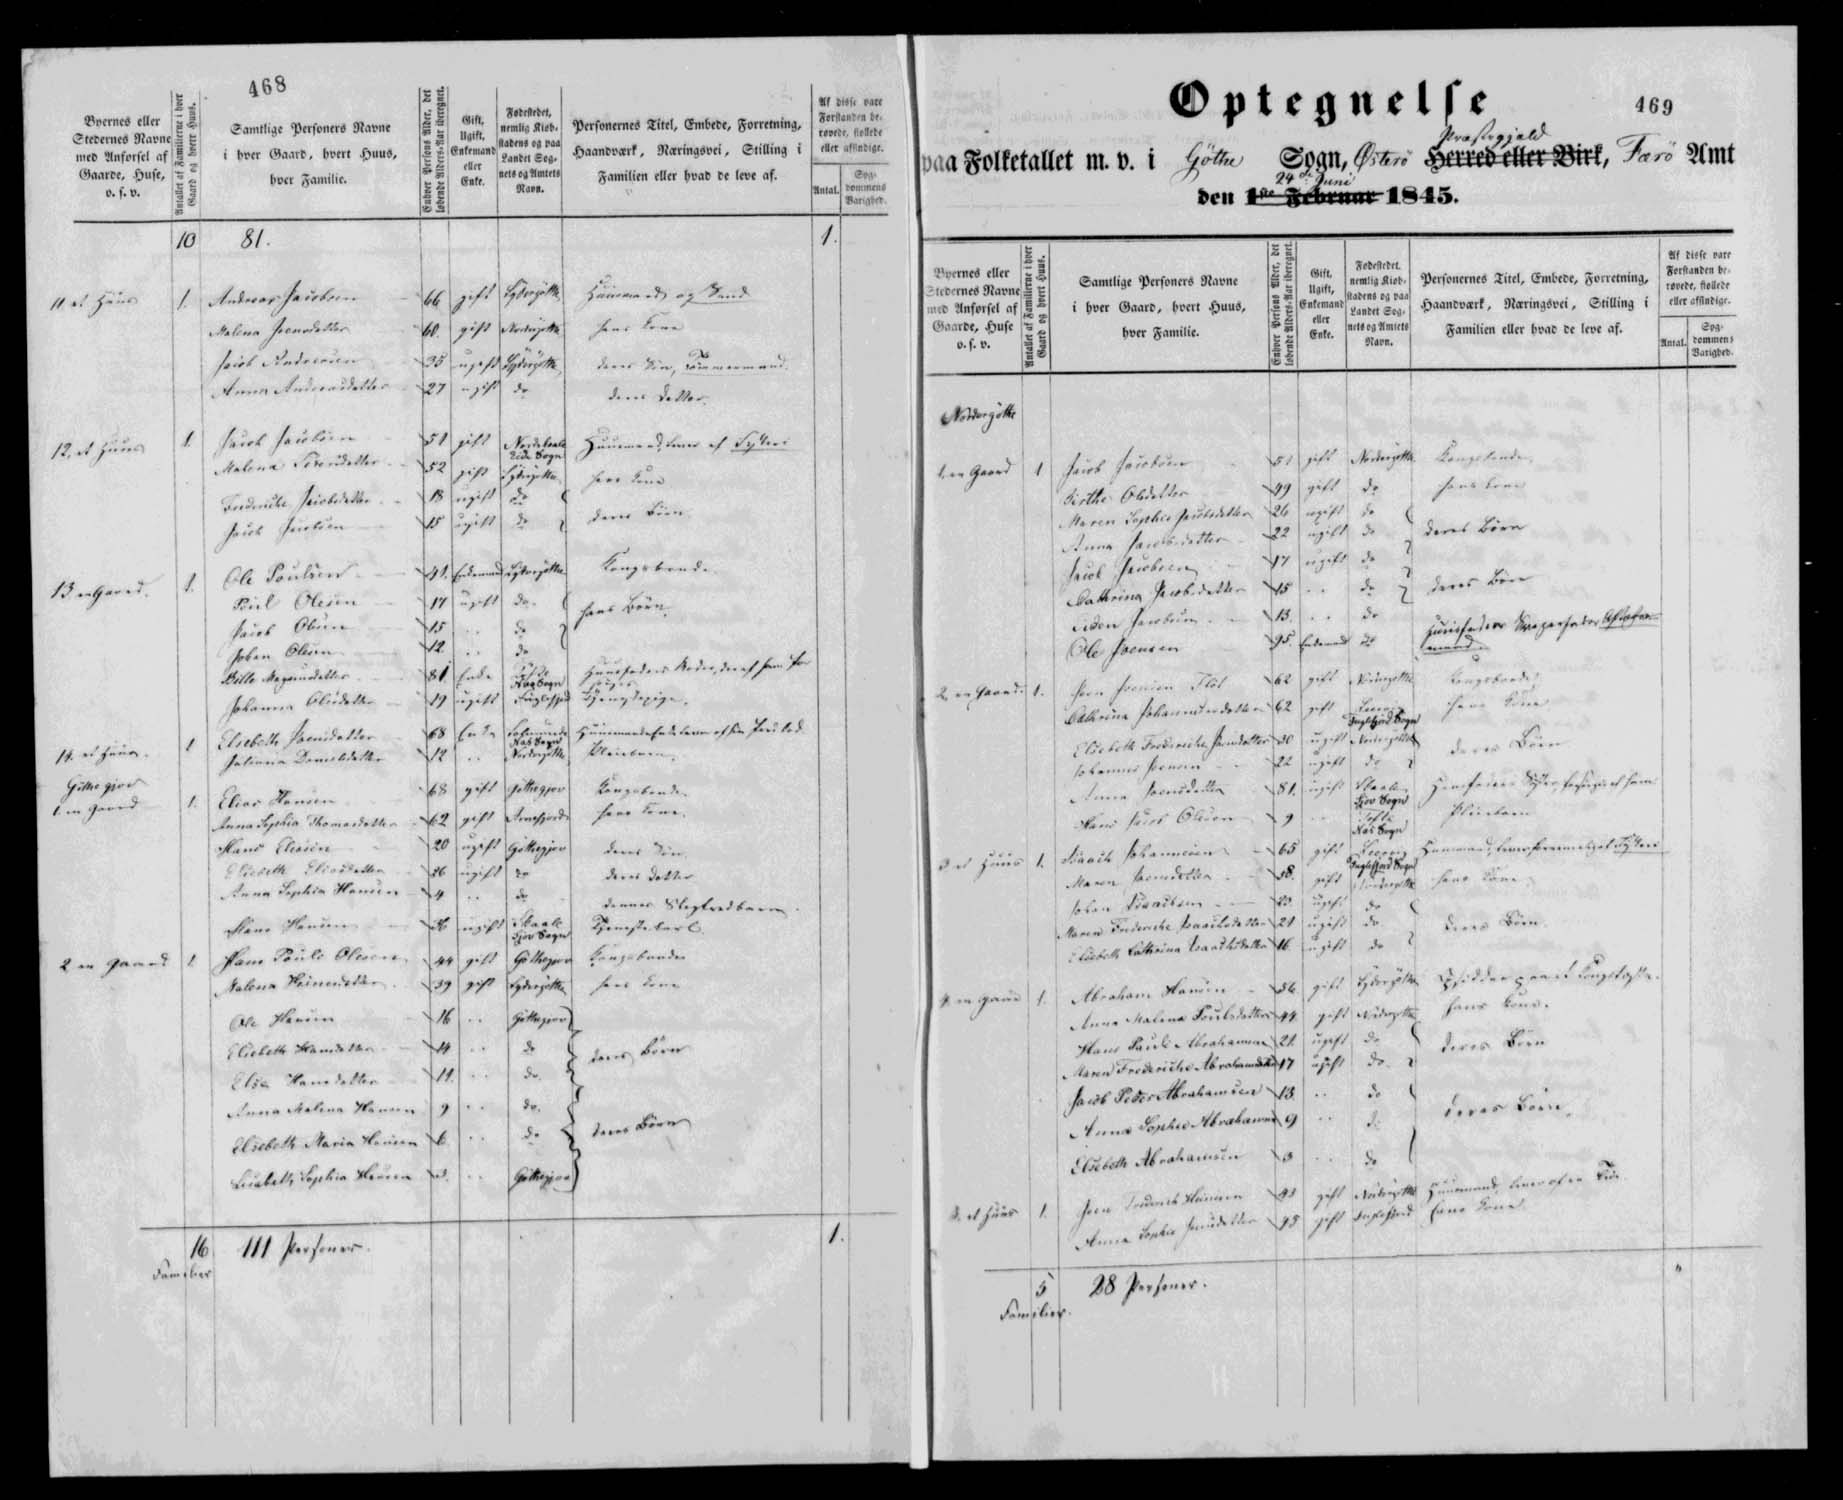 468
Byernes eller Stedernes Navne med Anførsel af Gaarde, Huse, o. s. v.
Antallet af Familierne i hver Gaard og hvert Huus.
Samtlige Personers Navne i hver Gaard, hvert Huus, hver Familie.
Enhver Persons Alder, det løbende Alders-Aar iberegnet.
Gift, Ugift, Enkemand eller Enke.
Fødestedet, nemlig Kiøbstadens og paa Landet Sognets og Amtets Navn.
Personernes Titel, Embede, Forretning, Haandværk, Næringsvei, Stilling i Familien eller hvad de leve af.
Af disse vare Forstanden berøvede, fiollede eller afsindige.
Antal.
Sygdommens Varighed.
10 81. 1.
11 et Huus 1. Andreas Jacobsen 66 gift Sydergøthe Huusmand
Malena Joensdatter 60. gift Nordregøthe hans Kone
Jacob Andreasen 35 ugift Sydergøthe deres Søn, Tømmermand
Anna Andreasdatter 27 ugift do deres Datter.
12, et Huus 1. Jacob Jacobsen 51 gift Huusmand, lever af Fiskeri
Malena 52 gift Sydergøthe hans Kone
Fredericke Jacobsdatter 18 ugift do
Jacob Jacobsen 15 ugift do deres Børn
13 en Gaard. 1. Ole Poulsen 41. Enkemand Sydergøthe Kongsbonde
Poul Olesen 17 ugift do
Jacob Olesen 15 " do hans Børn.
Johan Olesen 12. " do
Magnusdatter 81. Enke Næs Sogn Huusfaders Moder
Johanna Olesdatter 19 ugift Fuglefjord Tjenestepige.
14. et Huus. 1 Elsebeth Joensdatter 68 Enke Næs Sogn
Juliana 12 " Nordregøthe Pleiebarn.
Göthegjov
1. en Gaard 1. Elias Hansen 68 gift Göthegjov Kongsbonde
Anna Sophia Thomasdatter 62 gift Arnefjord hans Kone.
Hans Eliesen 20 ugift Göthegjov deres Søn
Elsebeth Eliasdatter 36 ugift do deres Datter
Anna Sophia Hansen 4 " do dennes Slegfredbarn.
Hans Hansen 36 ugift Skaale Tjenestekarl.
2 en Gaard 1. Hans Pauli Olesen 44 gift Göthegjov Kongsbonde
Malena 39 gift Sydergøthe hans Kone
Ole Hansen 16 " Göthegjov
Elsebeth Hansdatter 14 " do deres Børn
Elsa Hansdatter 11. " do.
Anna Malena Hansen 9 " do.
Elsebeth Maria Hansen 6 " do deres Børn
Lisabeth Sophia Hansen 3. " Göthegjov
16 Familier 111 Personer. 1.
469
Optegnelse
paa Folketallet m. v. i Göthe Sogn, Østerø Præstegjeld Herred eller Birk, Færø Amt
24de Juni
den 1ste Februar 1845.
Byernes eller Stedernes Navne med Anførsel af Gaarde, Huse o. s. v.
Antallet af Familierne i hver Gaard og hvert Huus.
Samtlige Personers Navne i hver Gaard, hvert Huus, hver Familie.
Enhver Persons Alder, det løbende Alders-Aar iberegnet.
Gift, Ugift, Enkemand eller Enke.
Fødestedet, nemlig Kiøbstadens og paa Landet Sognets og Amtets Navn.
Personernes Titel, Embede, Forretning, Haandværk, Næringsvei, Stilling i Familien eller hvad de leve af.
Af disse vare Forstanden berøvede, fiollede eller afsindige.
Antal.
Sygdommens Varighed.
Nordregøthe
1. en Gaard 1 Jacob Jacobsen 51 gift Nordregøthe Kongsbonde
Birthe Olesdatter 49 gift do hans Kone
Maren Sophie Jacobsdatter 26 ugift do
Anna Jacobsdatter 22 ugift do deres Børn
Jacob Jacobsen 17 ugift do
Cathrina Jacobsdatter 15 " do deres Børn
Jacobsen 13. " do
Ole Joensen 95. Enkemand do
2. en Gaard. 1. Joen Joensen 62 gift Nordregøthe Kongsbonde
Cathrina Johannesdatter 62 gift Fuglefjord Sogn hans Kone
Elsebeth Fredericke Joensdatter 30 ugift Nordregøthe deres Børn
Johannes Joensen 22 ugift do
Anna Joensdatter 81. ugift Skaale
Hans Jacob Olesen 9 " Næs Sogn Pleiebarn
3 et Huus 1. Isaach Johannesen 65 gift Fuglefjord Sogn
Maren Joensdatter 58. gift Nordregøthe hans Kone
Johan Isaachsen 23. ugift do
Maren Fredericke Isaachsdatter 21 ugift do deres Børn.
Elsebeth Cathrina Isaachsdatter 16. ugift do
4. en Gaard 1. Abraham Hansen 56. gift Sydergøthe
Anna Malena Poulsdatter 44. gift Nordregøthe hans Kone.
Hans Pauli Abrahamsen 21. ugift do deres Børn
Maren Fredericke Abrahamsdatter 17 ugift do.
Jacob Peder Abrahamsen 13. " do
Anna Sophie Abrahamsen 9 " do deres Børn.
Elsebeth Abrahamsen 3 " do
5. et Huus 1. Joen Frederick Hansen 43 gift Nordregøthe
Anna Sophie Joensdatter 45 gift Fuglefjord hans Kone
5 Familier. 28 Personer. "